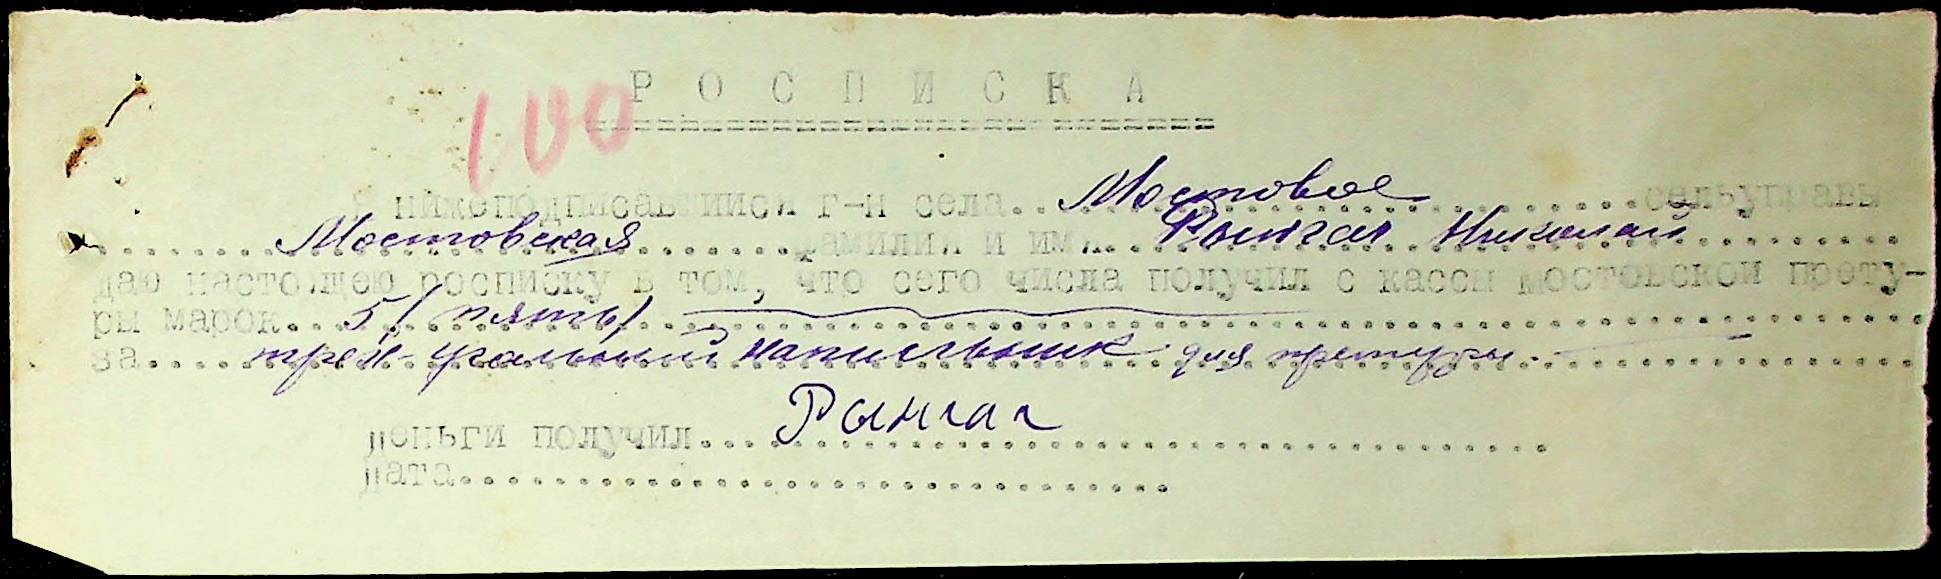 100
Р О С П И С К А
Я нижеподписавшийся г-н села.. Мостовое ..сельуправы
Мостовская фамилия и имя.. Рынгач Николай
даю настоящею росписку в том, что сего числа получил с кассы мостовской прету-
ры марок.. 5/ пять/
за.... трех-угольный напильник для претуры.
деньги получил.... Рынгач
дата....